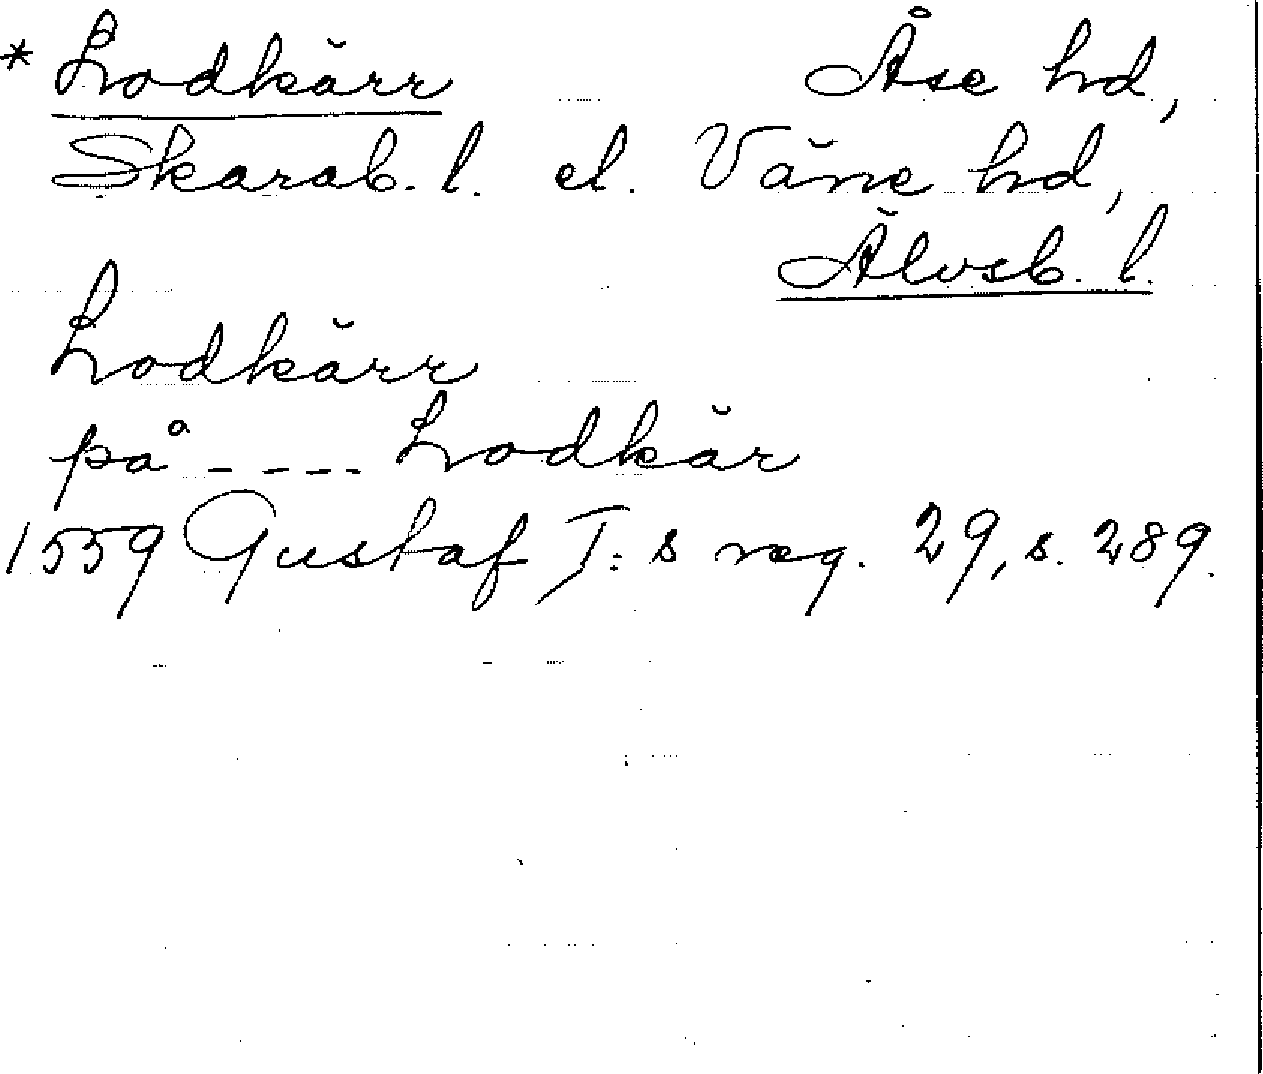 * Lodkärr Åse hd,
Skarab. l. el. Väne hd,
Älvsb. l.
Lodkärr
på ---- Lodkär
1559 Gustaf I:s reg. 29, s. 289.